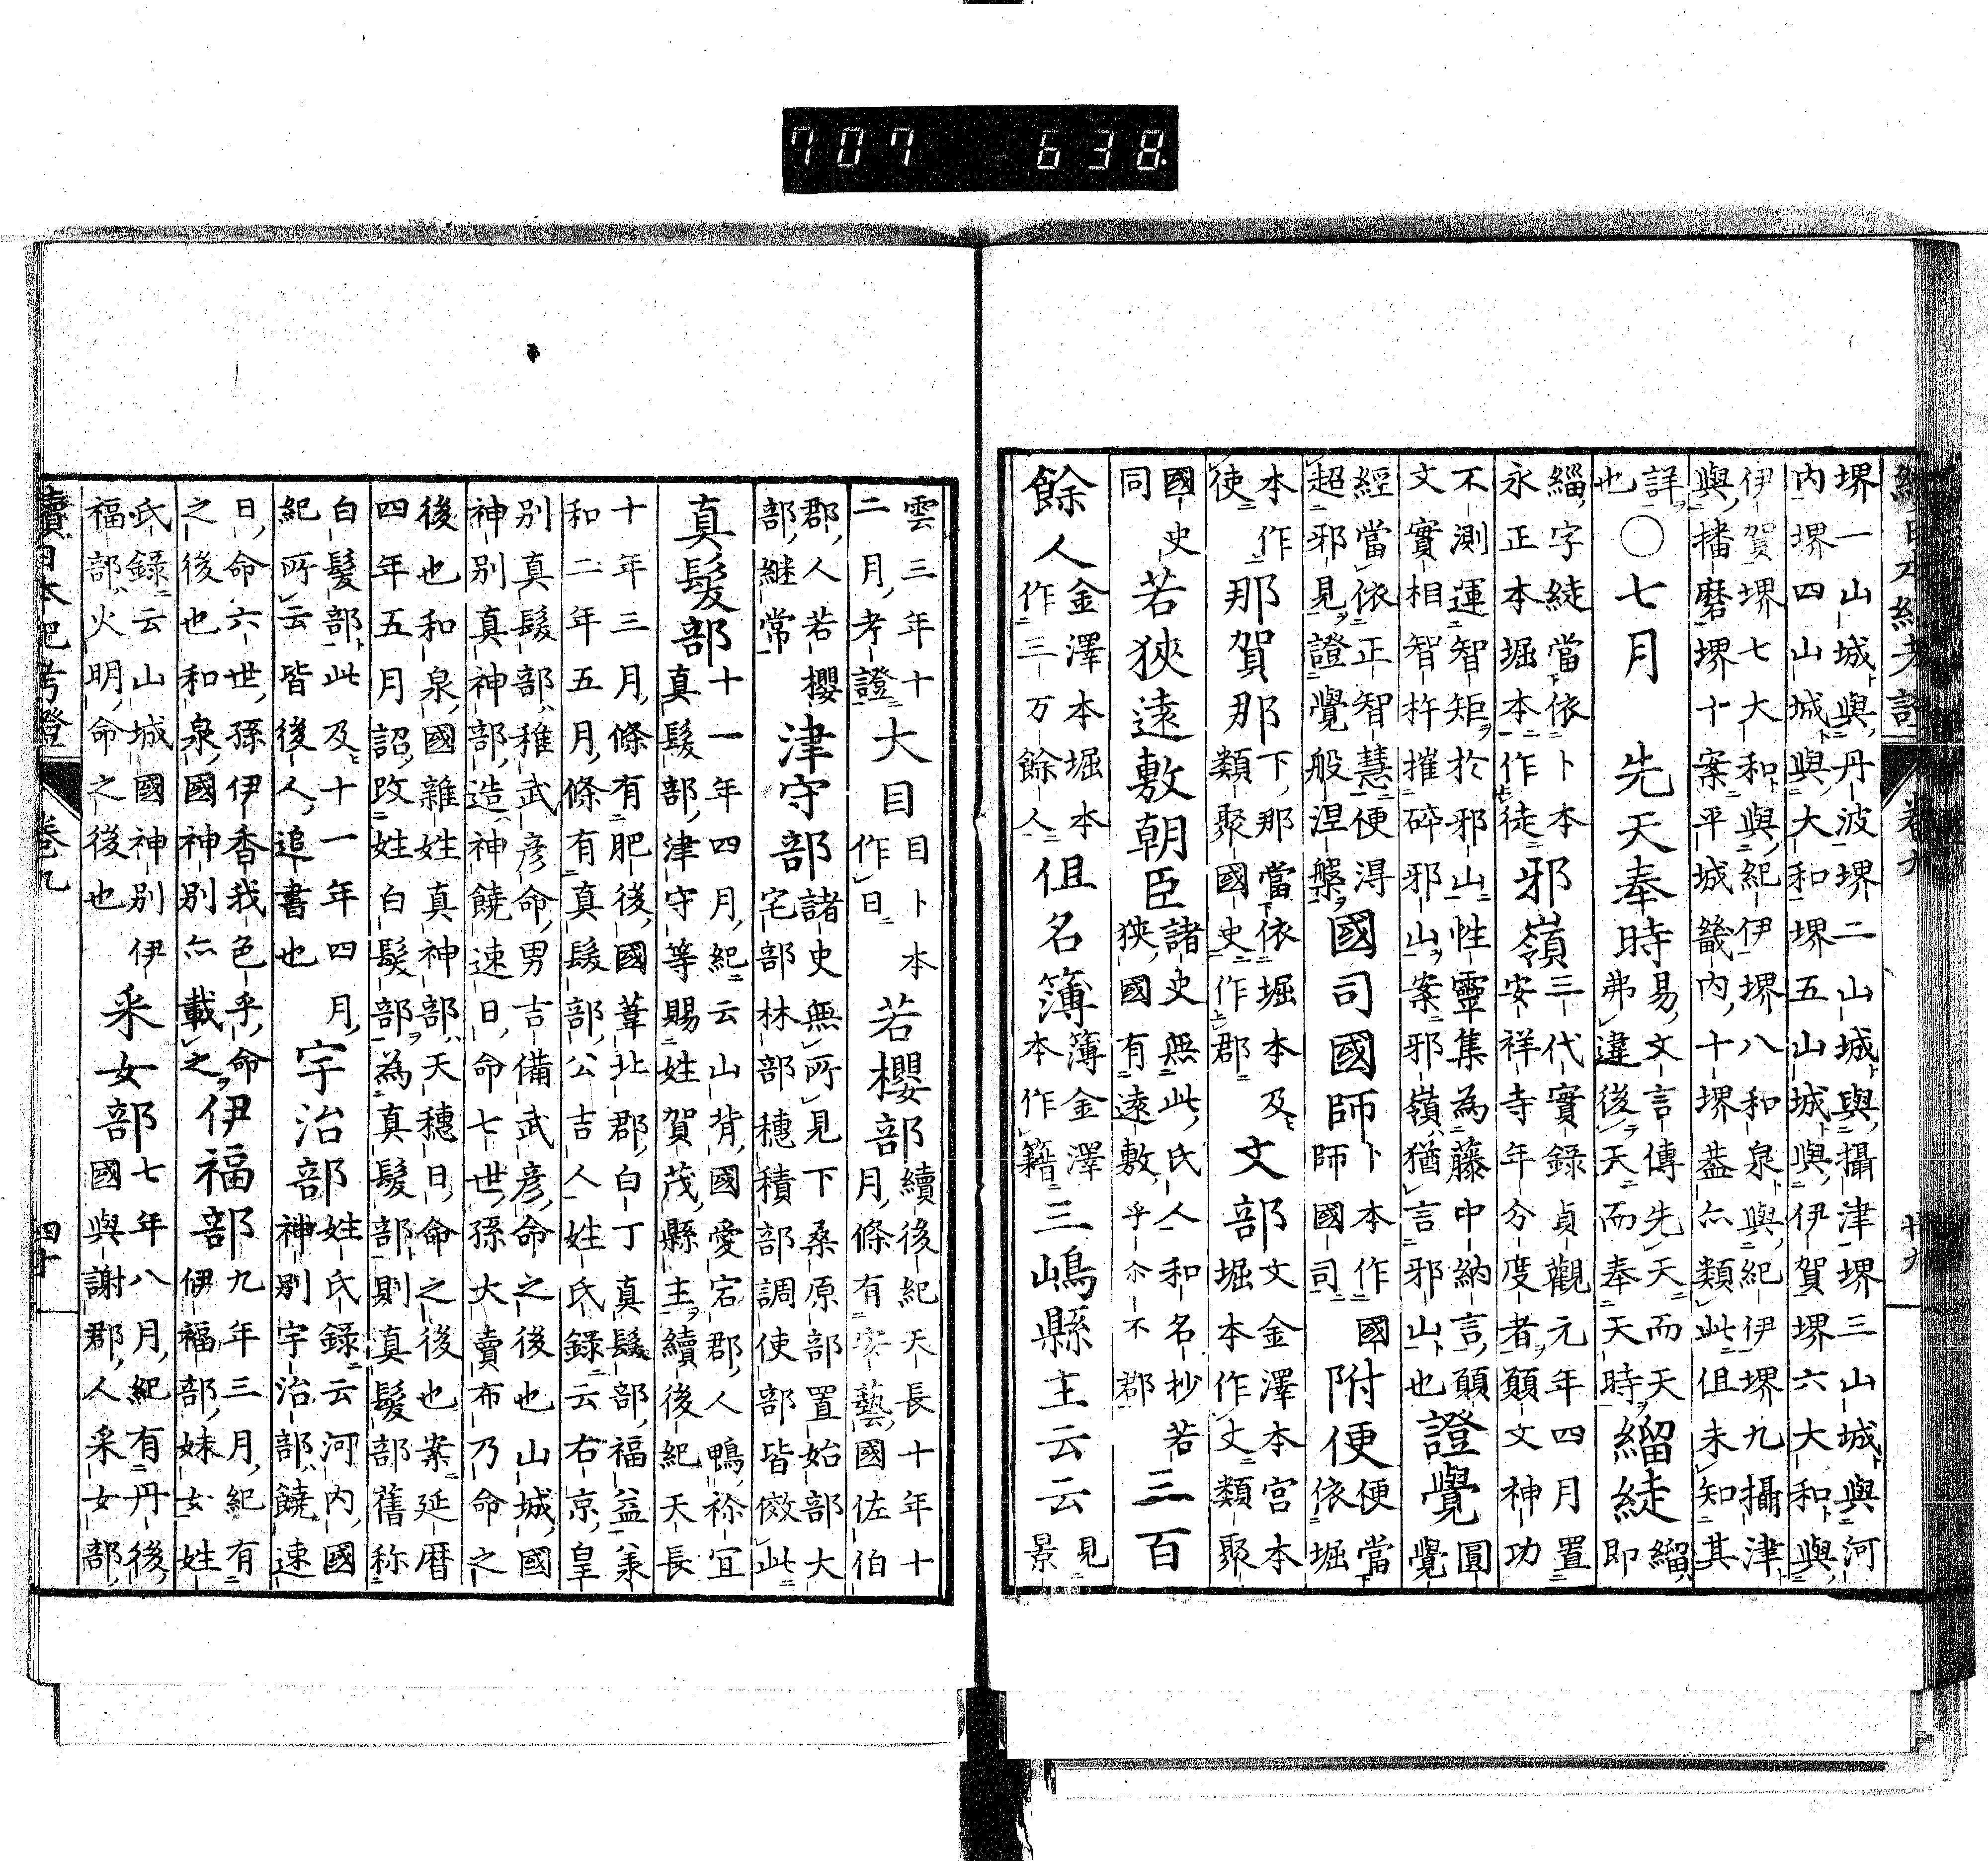 707 638
續日本紀考證 卷九 卅九
堺一山城與丹波堺二山城與攝津堺三山城與河
内堺四山城與大和堺五山城與伊賀堺六大和與
伊賀堺七大和與紀伊堺八和泉與紀伊堺九攝津
與播磨堺十案平城畿内十堺蓋亦類此但未知其
詳
也〇七月 先天奉時易文言傳先天而天弗違後天而奉天時緇綎緇即
緇字綎當依卜本永正本堀本作徒邪嶺三代實錄貞觀元年四月置安祥寺年分度者願文神功
不測運智矩於邪山性靈集為藤中納言願文實相智杵摧碎邪山案邪嶺猶言邪山也證覺圓覺
經當依正智慧便淂超邪見證覺般涅槃國司國師卜本作國師國司附便便當依堀
本作使那賀那下那當依堀本及類聚國史作郡文部文金澤本宮本堀本作丈類聚
國史同若狹遠敷朝臣諸史無此氏人和名抄若狹國有遠敷乎尓不郡三百
餘人金澤本堀本作三万餘人但名簿簿金澤本作籍三嶋縣主云云見景
雲三年十二月考證大目目卜本作日若櫻部續後紀天長十年十月條有安藝國佐伯
郡人若櫻部継常津守部諸史無所見下桑原部置始部大宅部林部穗積部調使部皆傚此
真髪部十一年四月紀云山背國愛宕郡人鴨祢宜真髪部津守等賜姓賀茂縣主續後紀天長
十年三月條有肥後國葦北郡白丁真髮部福益羕和二年五月條有真髮部公吉人姓氏録云右京皇
別真髮部稚武彦命男吉備武彦命之後也山城國神別真神部造神饒速日命七世孫大賣布乃命之
後也和泉國雜姓真神部天穗日命之後也案延暦四年五月詔改姓白髮部為真髮部則真髮部舊称
白髮部此及十一年四月紀所云皆後人追書也宇治部姓氏錄云河内國神別宇治部饒速
日命六世孫伊香我色乎命之後也和泉國神別亦載之伊福部九年三月紀有伊福部妹女姓
氏錄云山城國神別伊福部火明命之後也采女部七年八月紀有丹後國與謝郡人采女部
續日本紀考證 卷九 四十